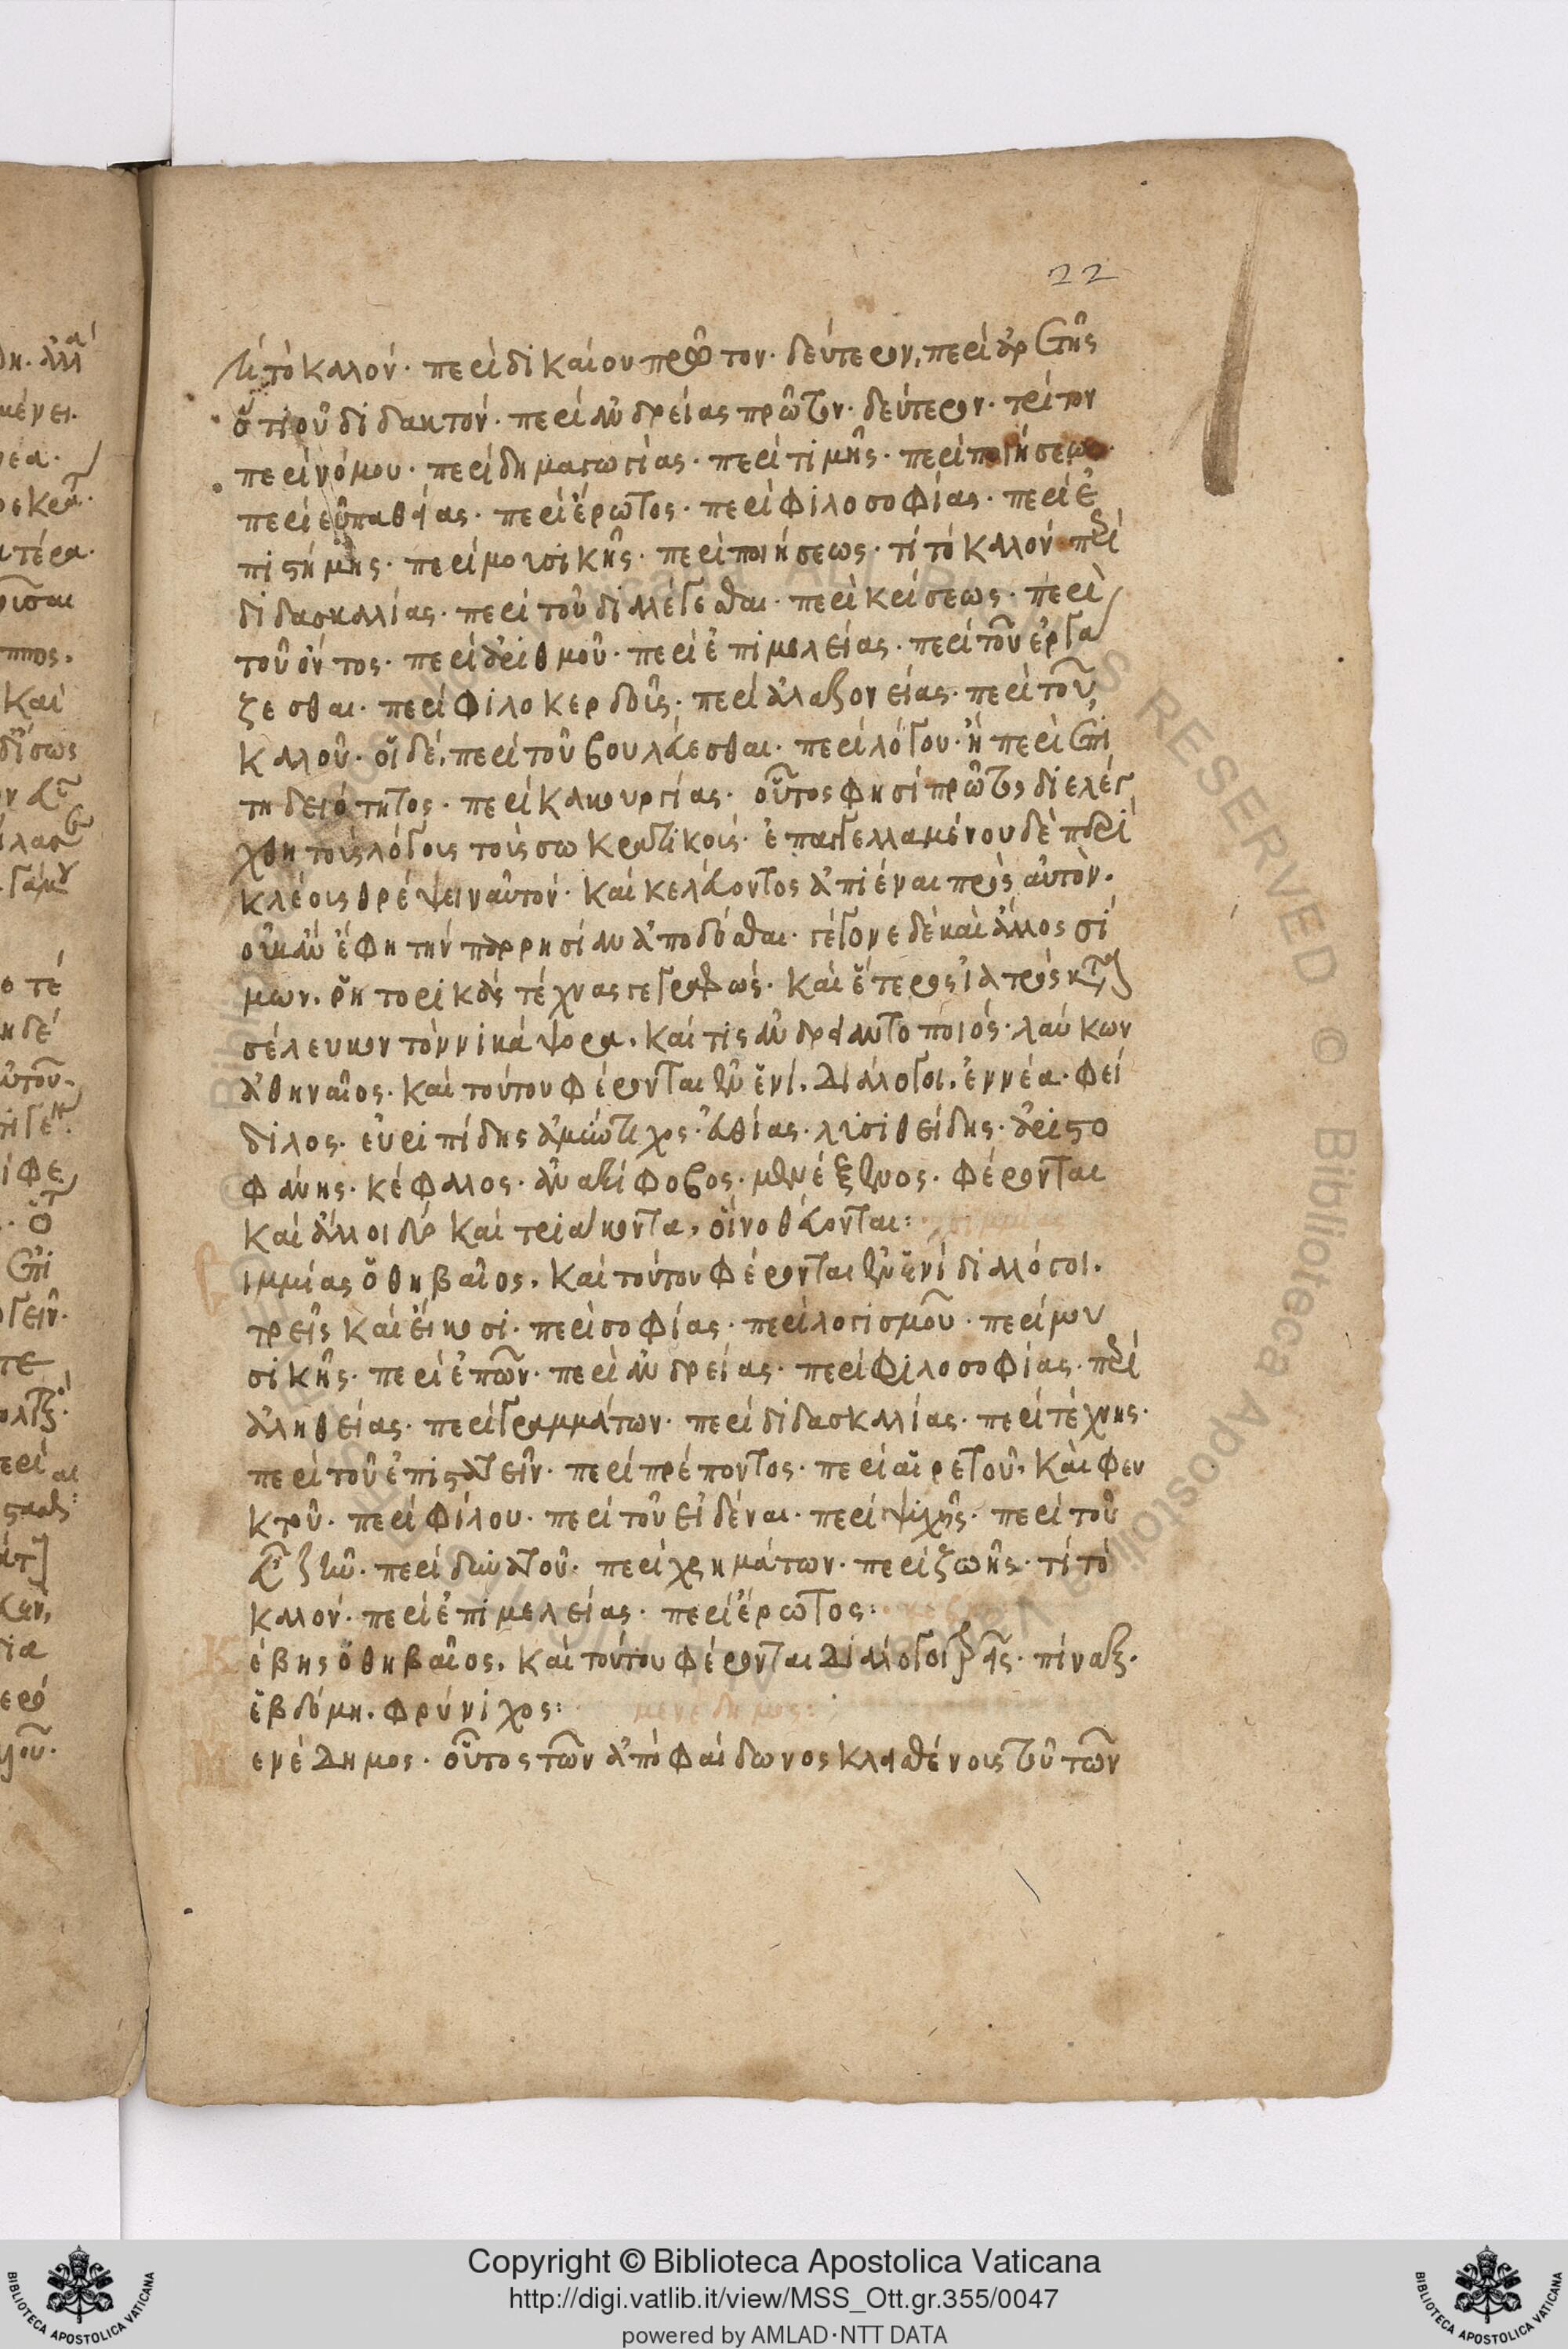 22
τί τὸ καλόν· περὶ δικαίου πρῶτον· δεύτερον, περὶ ἀρετῆς
ὅτι οὐ διδακτόν· περὶ ἀνδρείας πρῶτον· δεύτερον· τρίτον
περὶ νόμου· περὶ δημαγωγίας· περὶ τιμῆς· περὶ ποιήσεως·
περὶ εὐπαθείας· περὶ ἔρωτος· περὶ φιλοσοφίας· περὶ ἐ
πιστήμης· περὶ μουσικῆς· περὶ ποιήσεως· τί τὸ καλόν· περὶ
διδασκαλίας· περὶ τοῦ διαλέγεσθαι· περὶ κρίσεως· περὶ
τοῦ ὄντος· περὶ ἀριθμοῦ· περὶ ἐπιμελείας· περὶ τοῦ ἐργά
ζεσθαι· περὶ φιλοκερδοῦς· περὶ ἀλαζονείας· περὶ τοῦ
καλοῦ· οἱ δέ, περὶ τοῦ βουλεύεσθαι· περὶ λόγου· ἢ περὶ ἐπι
τηδειότητος· περὶ κακουργίας· οὗτος φησὶ πρῶτος διελέ
χθη τοὺς λόγους τοὺς σωκρατικούς· ἐπαγγελλαμένου δὲ περι
κλέους θρέψειν αὐτόν· καὶ κελεύοντος ἀπιέναι πρὸς αὐτὸν·
οὐκ ἂν ἔφη τὴν παρρησίαν ἀποδόσθαι· γέγονε δὲ καὶ ἄλλος σί
μων· ῥητορικὰς τέχνας γεγραφώς· καὶ ἕτερος ἰατρὸς κατὰ
σέλευκον τὸν νικάνορα· καί τις ἀνδριαντοποιός· γλαύκων
ἀθηναῖος· καὶ τούτου φέρονται ἐν ἑνί· διάλογοι· ἐννέα· φει
δίλος· εὐριπίδης ἀμύντιχος· εὐθίας· λυσιθείδης· ἀριστο
φάνης· κέφαλος· ἀναξίφοβος· μενέξενος· φέρονται
καὶ ἄλλοι δύο καὶ τριάκοντα, οἳ νοθεύονται:
ιμμίας ὁ θηβαῖος· καὶ τούτου φέρονται ἐν ἑνὶ διάλογοι·
τρεῖς καὶ εἴκοσι· περὶ σοφίας· περὶ λογισμοῦ· περὶ μου
σικῆς· περὶ ἐπῶν· περὶ ἀνδρείας· περὶ φιλοσοφίας· περὶ
ἀληθείας· περὶ γραμμάτων· περὶ διδασκαλίας· περὶ τέχνης·
περὶ τοῦ ἐπιστατεῖν· περὶ πρέποντος· περὶ αἱρετοῦ, καὶ φευ
κτοῦ· περὶ φίλου· περὶ τοῦ εἰδέναι· περὶ ψυχῆς· περὶ τοῦ
εὖ ζῆν· περὶ δυνατοῦ· περὶ χρημάτων· περὶ ζωῆς· τί τὸ
καλόν· περὶ ἐπιμελείας· περὶ ἔρωτος:
Κέβης ὁ θηβαῖος· καὶ τούτου φέρονται διάλογοι τρεῖς· πίναξ·
ἑβδόμη· φρύνιχος: μενεδημος:
Μενέδημος· οὗτος τῶν ἀπὸ φαίδωνος κλεισθένους τοῦ τῶν
Copyright © Biblioteca Apostolica Vaticana
http://digi.vatlib.it/view/MSS_Ott.gr.355/0047
powered by AMLAD·NTT DATA